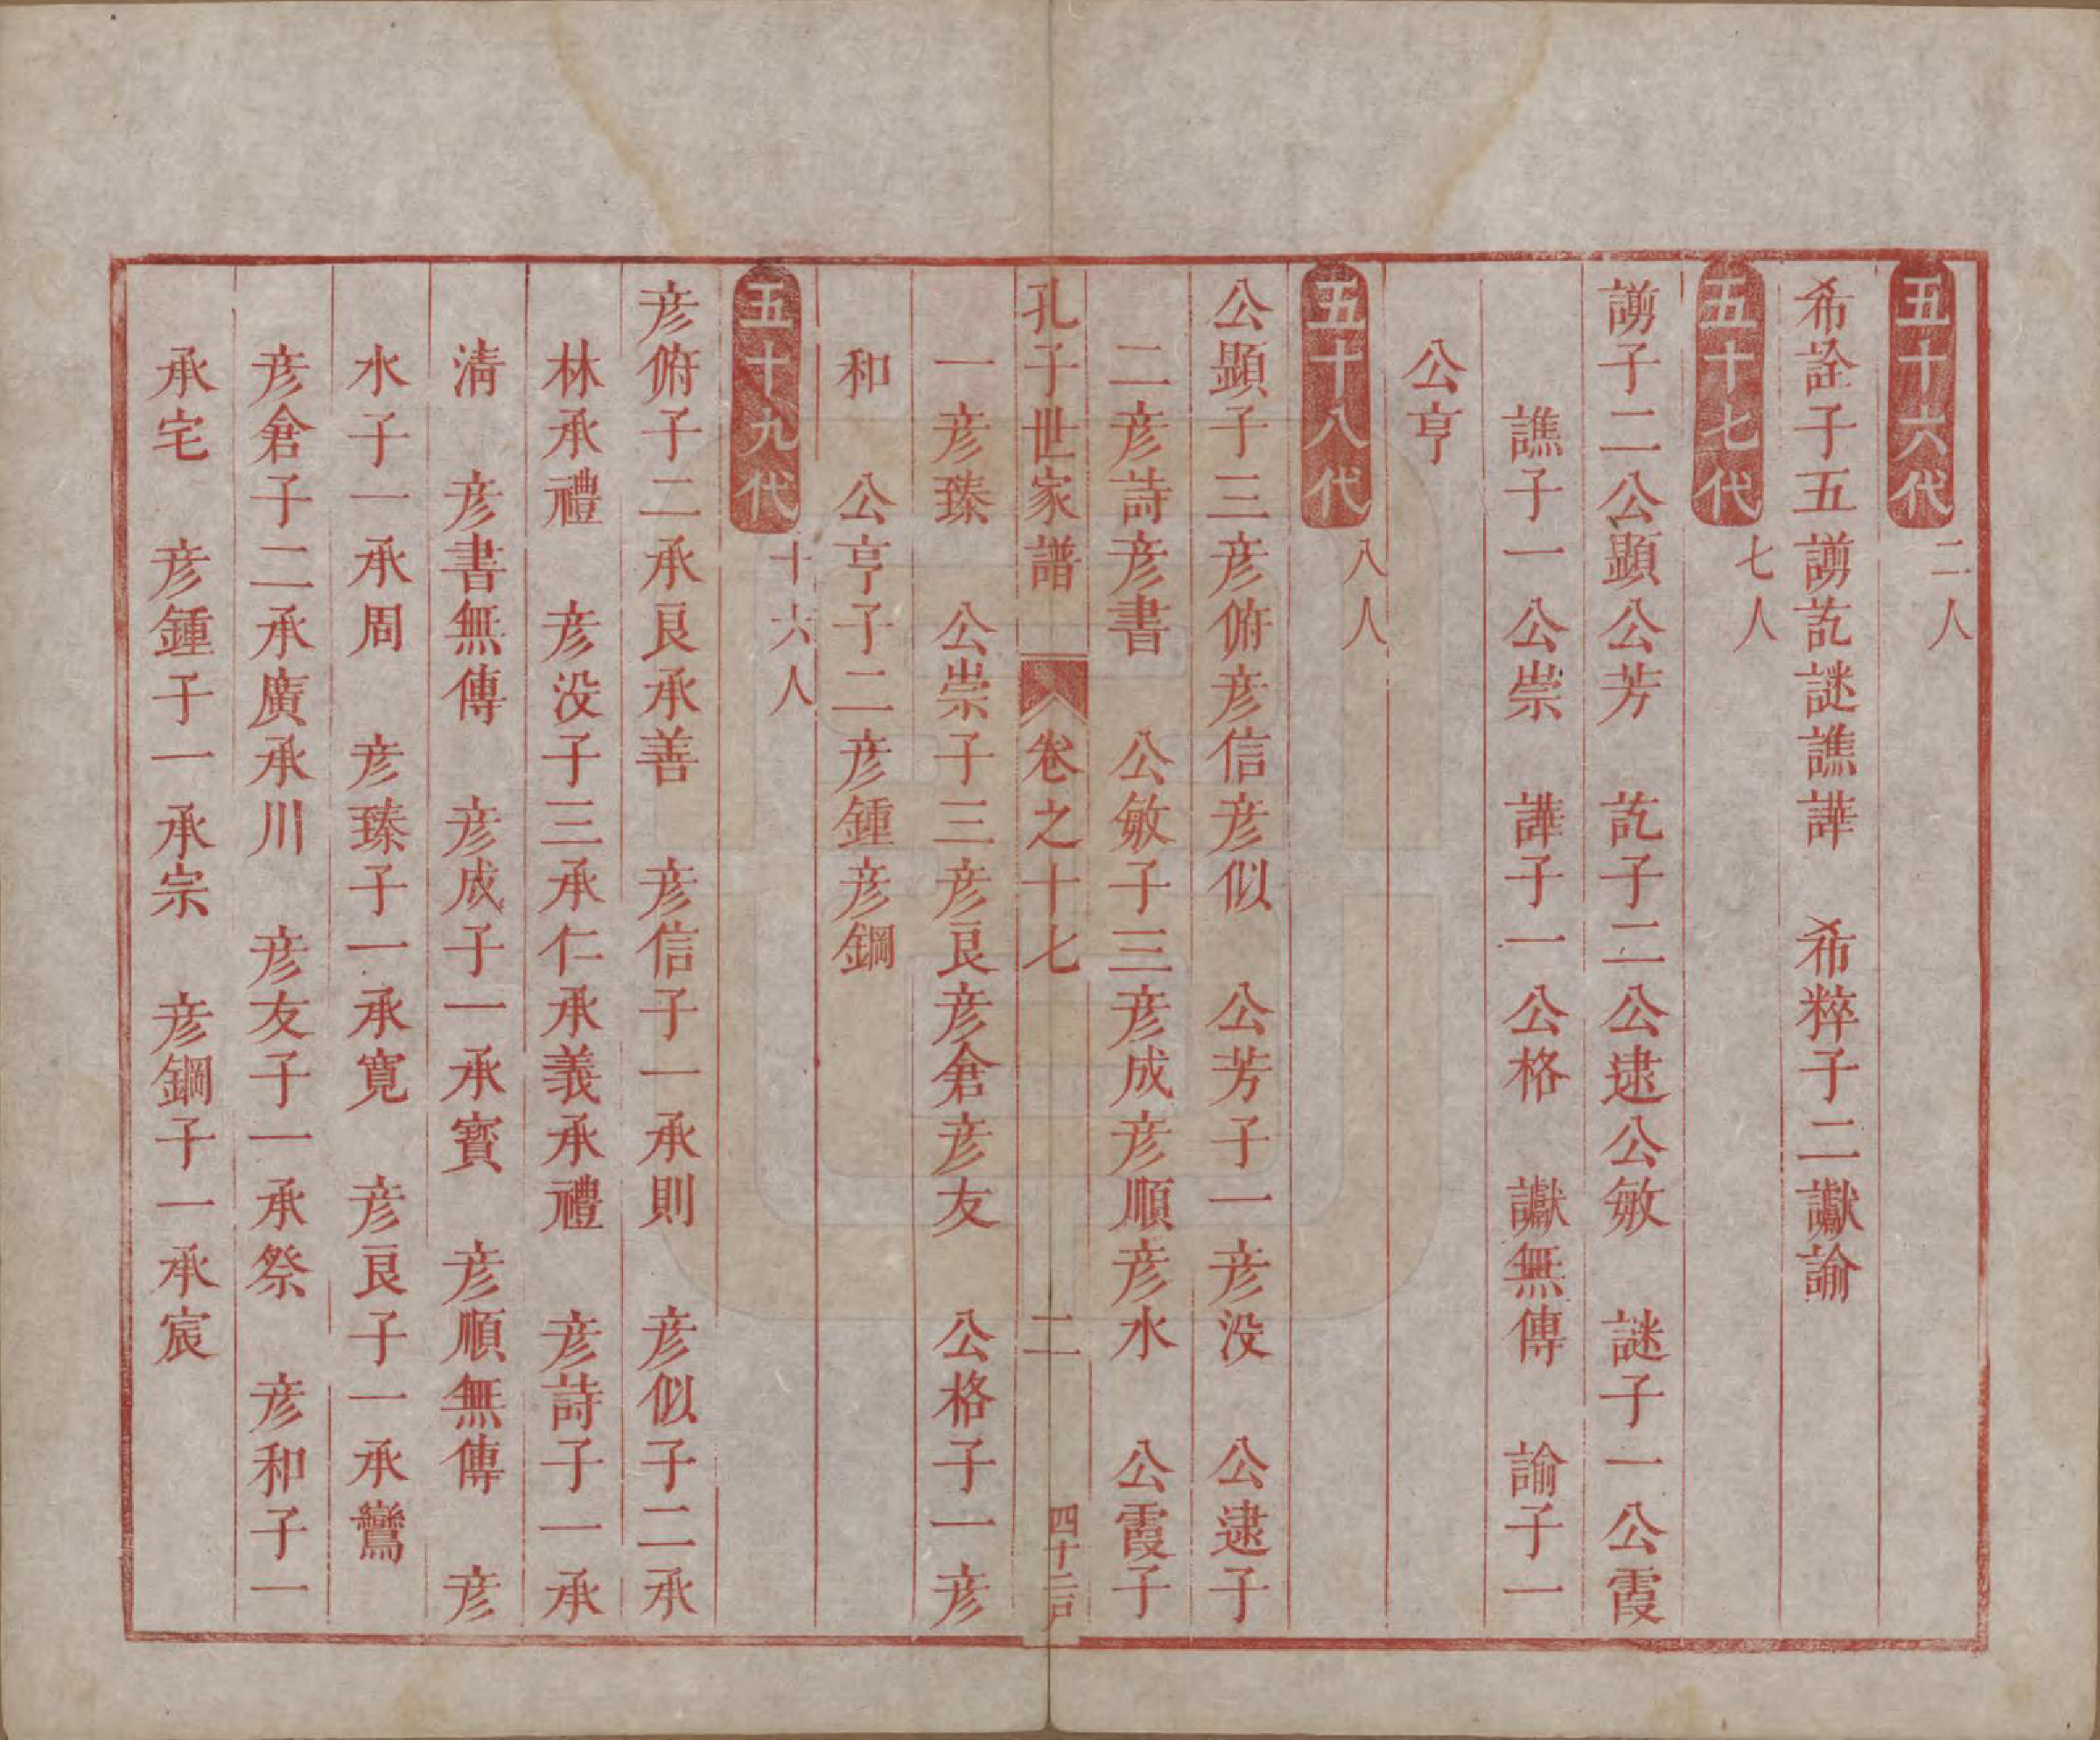 五十六代 二人
希詮子五謭訖謎譙譁 希粹子二讞諭
五十七代 七人
謭子二公顯公芳 訖子二公逮公敏 謎子一公霞
譙子一公崇 譁子一公格 讞無傳 諭子一
公亨
五十八代 八人
公顯子三彦俯彦信彦似 公芳子一彦没 公逮子
二彦詩彦書 公敏子三彦成彦順彦水 公霞子
孔子世家譜 卷之十七 二 四十二戸
一彦臻 公崇子三彦良彦倉彦友 公格子一彦
和 公亨子二彦鍾彦鋼
五十九代 十六人
彦俯子二承良承善 彦信子一承則 彦似子二承
林承禮 彦没子三承仁承義承禮 彦詩子一承
清 彦書無傳 彦成子一承寳 彦順無傳 彦
水子一承周 彦臻子一承寛 彦良子一承鸞
彦倉子二承廣承川 彦友子一承祭 彦和子一
承宅 彦鍾子一承宗 彦鋼子一承宸